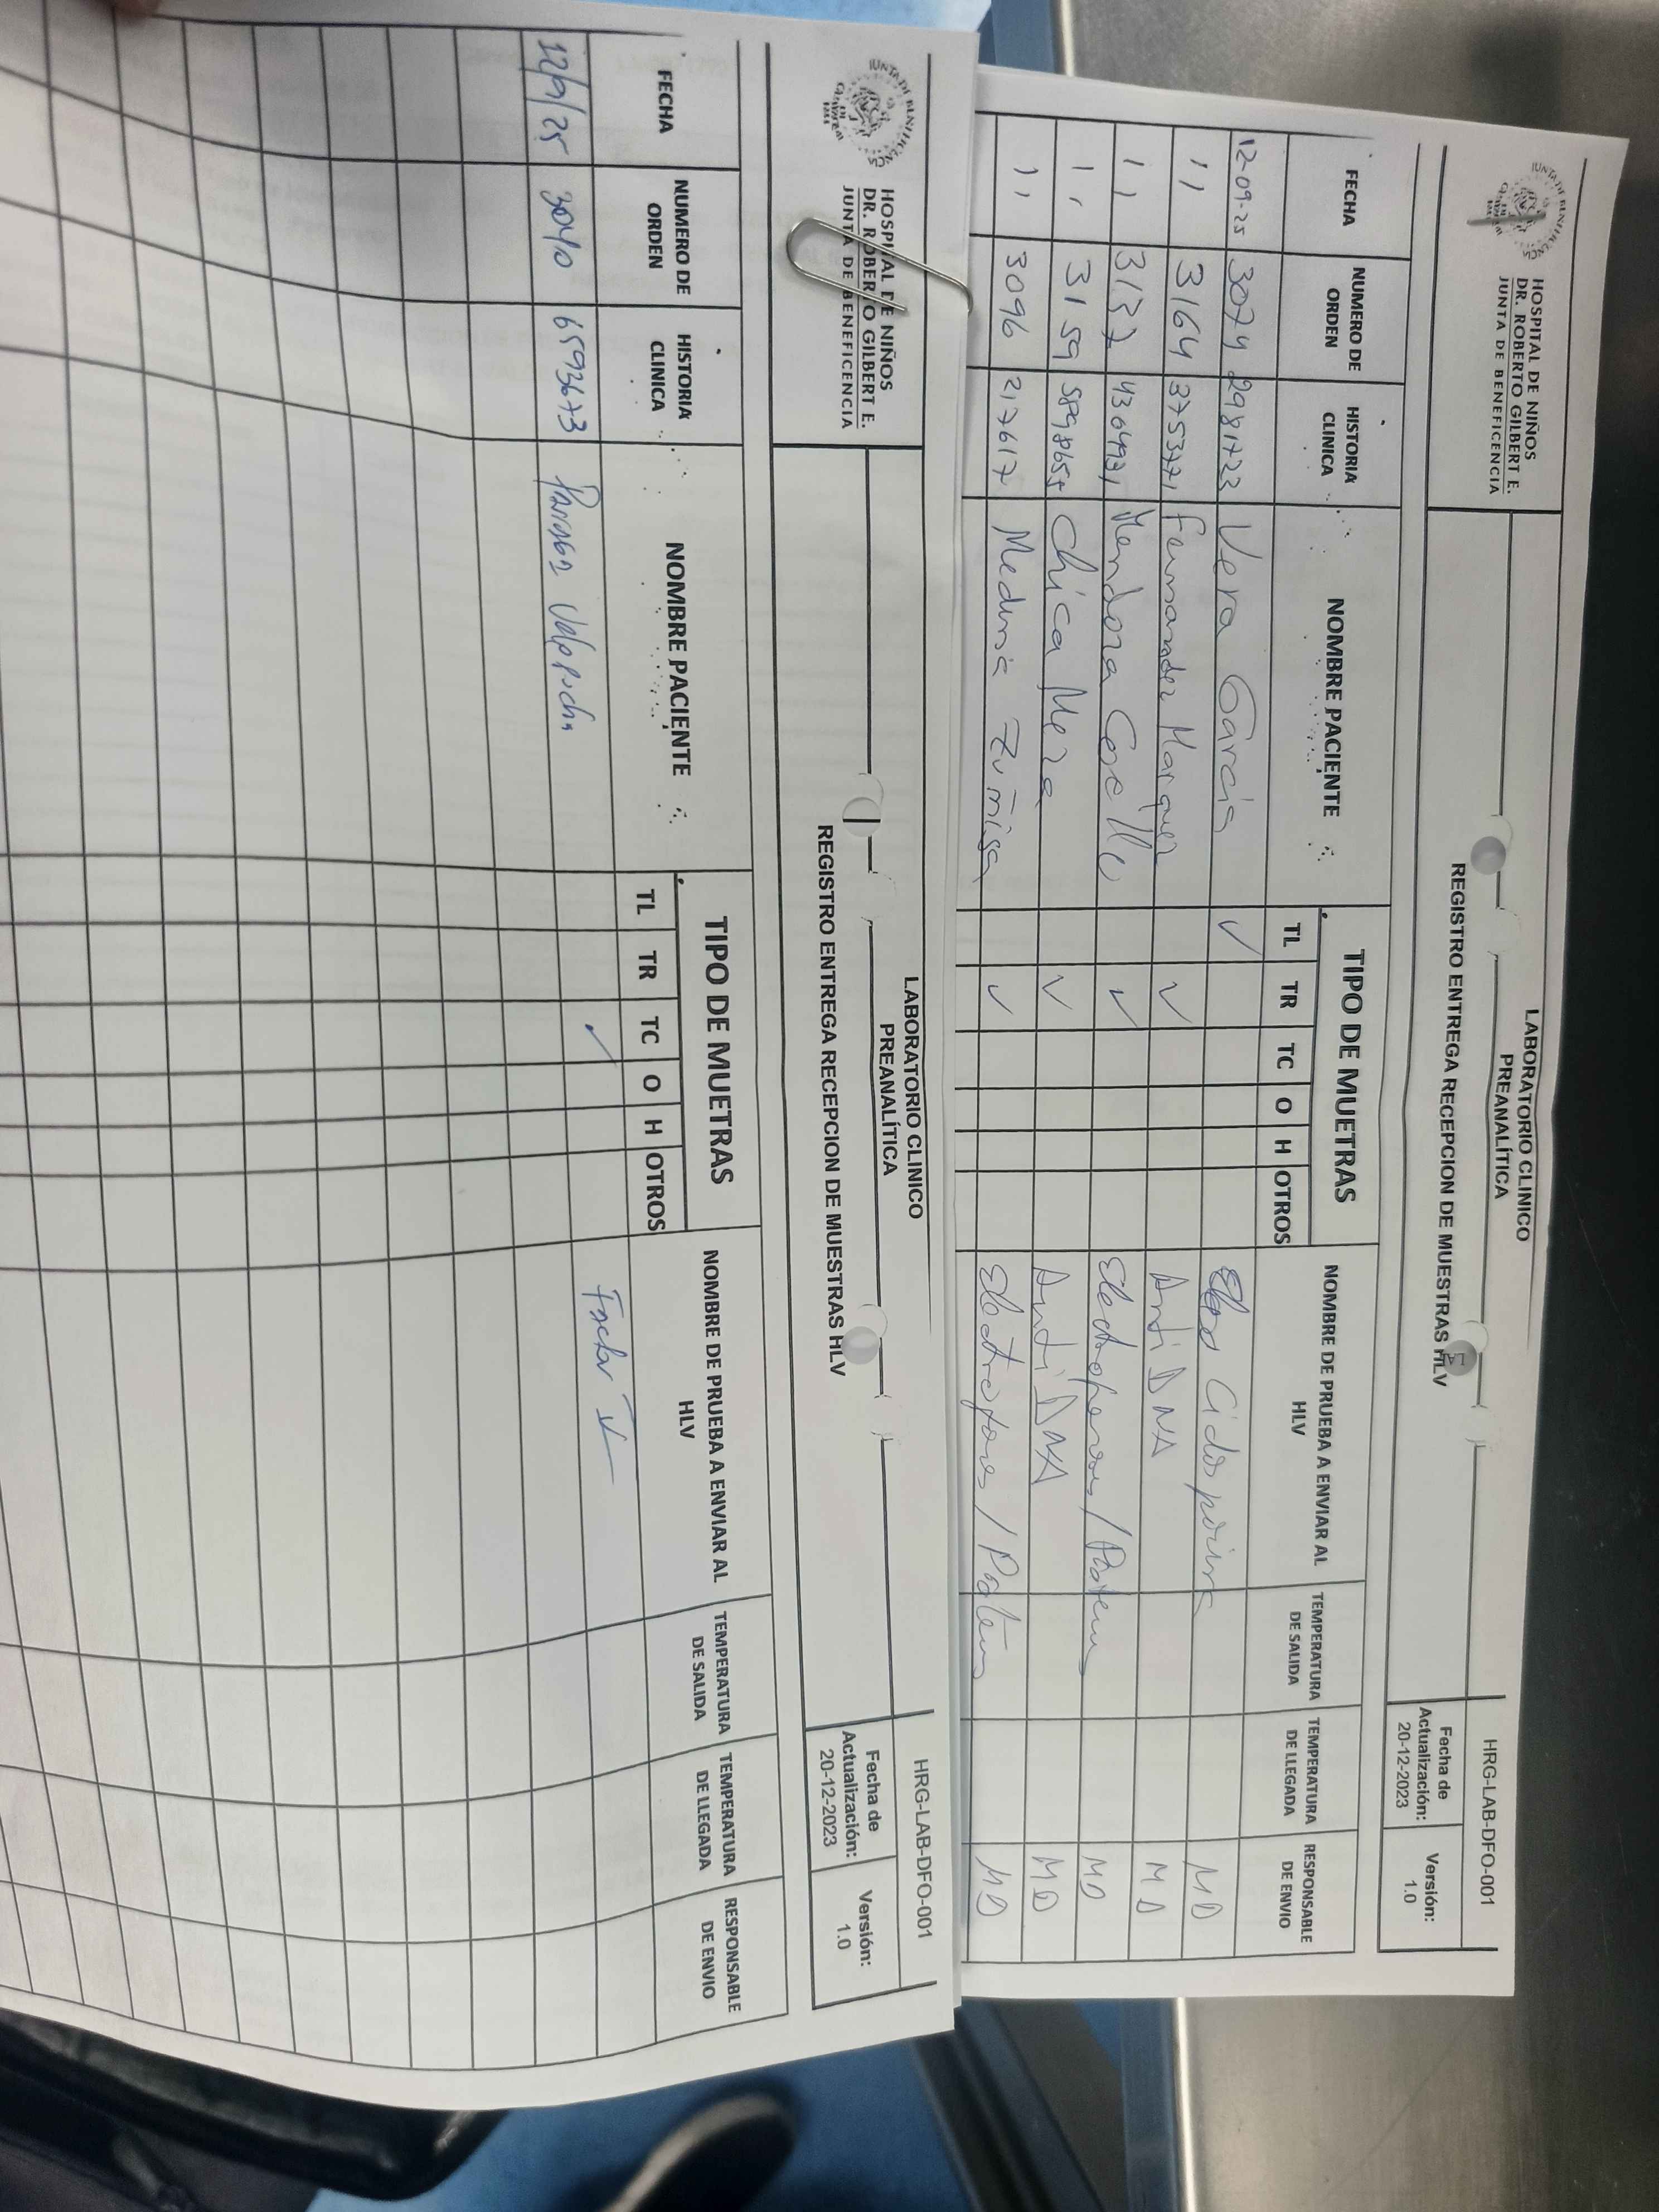 HOSPITAL DE NIÑOS
DR. ROBERTO GILBERT E.
JUNTA DE BENEFICENCIA
LABORATORIO CLINICO
PREANALÍTICA
REGISTRO ENTREGA RECEPCION DE MUESTRAS HLV
HRG-LAB-DFO-001
Fecha de
Actualización:
20-12-2023
Versión:
1.0
FECHA
NUMERO DE
ORDEN
HISTORIA
CLINICA
NOMBRE PACIENTE
TIPO DE MUETRAS
TL TR TC O H OTROS
NOMBRE DE PRUEBA A ENVIAR AL
HLV
TEMPERATURA
DE SALIDA
TEMPERATURA
DE LLEGADA
RESPONSABLE
DE ENVIO
12-09-25 3074 2981723 Vera Garcia ✓ Ciclosporina MD
11 3164 Fernandez Marquez ✓ Anti DNA MD
11 3137 Mendoza ✓ MD
11 3159 Chica Meza ✓ Anti DNA MD
11 3096 217617 Medina Zuñiga ✓ MD
HOSPITAL DE NIÑOS
DR. ROBERTO GILBERT E.
JUNTA DE BENEFICENCIA
LABORATORIO CLINICO
PREANALÍTICA
REGISTRO ENTREGA RECEPCION DE MUESTRAS HLV
HRG-LAB-DFO-001
Fecha de
Actualización:
20-12-2023
Versión:
1.0
FECHA
NUMERO DE
ORDEN
HISTORIA
CLINICA
NOMBRE PACIENTE
TIPO DE MUETRAS
TL TR TC O H OTROS
NOMBRE DE PRUEBA A ENVIAR AL
HLV
TEMPERATURA
DE SALIDA
TEMPERATURA
DE LLEGADA
RESPONSABLE
DE ENVIO
12/9/25 3040 6593673 ✓ Factor V